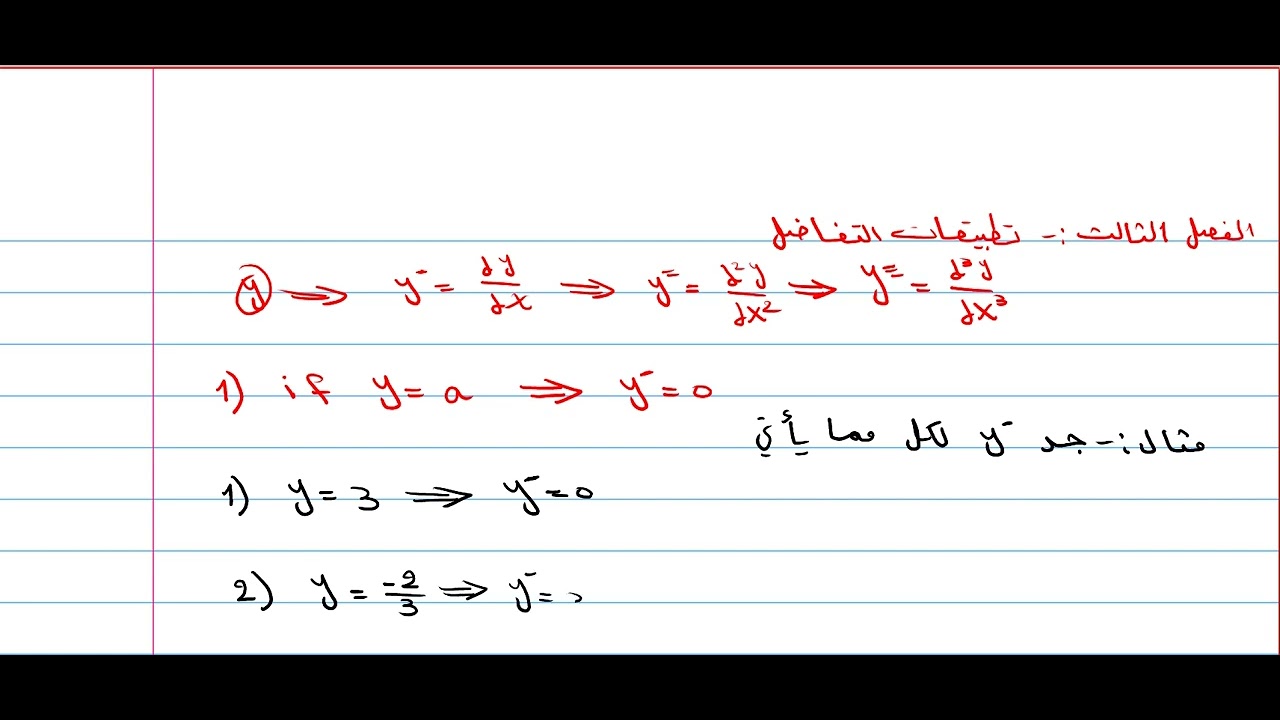 الفصل الثالث :- تطبيقات التفاضل
y ⟹ y⁻ = dy/dx ⟹ y⁼ = d²y/dx² ⟹ y≡ = d³y/dx³
1) if y = a ⟹ y⁻ = 0
مثال :- جد y⁻ لكل مما يأتي
1) y = 3 ⟹ y⁻ = 0
2) y = -2/3 ⟹ y⁻ =